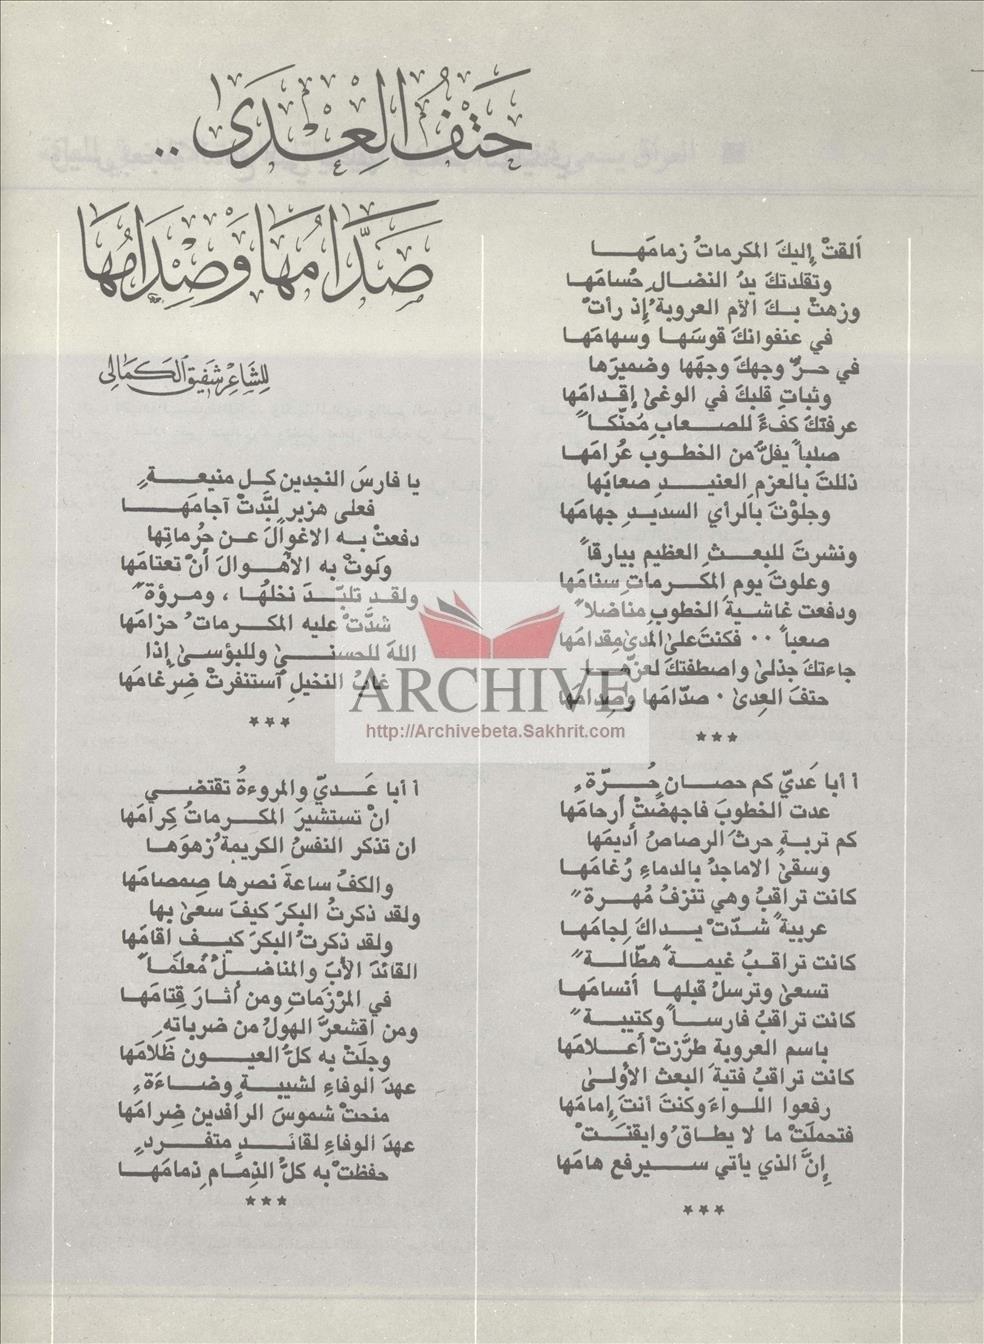 حَتْفُ العِدَى ..
صَدَّامُهَا وَصِدَامُهَا
للشاعر شفيق الكمالي
ألقتْ إليكَ المكرماتُ زمامَهـا
وتقلدتكَ يدُ النضالِ حُسامَهـا
وزهتْ بـكَ الأم العروبةُ إذ رأتْ
في عنفوانكَ قوسَهـا وسهامَهـا
في حرِّ وجهكَ وجهَها وضميرَها
وثباتِ قلبكَ في الوغىٰ إقـدامَها
عرفتكَ كفءً للصـعابِ مُحنّكـاً
صلباً يفلُّ من الخطـوبِ عُرامَهـا
ذللتَ بالعزمِ العنيـدِ صعابَها
وجلوْتَ بالرأي السديـدِ جهامَها
ونشرتَ للبعـثِ العظيمِ بيارقاً
وعلوتَ يوم المكـرماتِ سنامَها
ودفعت غاشيةَ الخطوبِ مناضلاً
صعباً ٠٠ فكنتَ علىٰ المدىٰ مِقدامَها
جاءتكَ جذلىٰ واصطفتكَ لعزّهـا
حتفَ العِدىٰ ٠ صدّامَها وصِدامَها
***
أ أبا عَديّ كم حصـانٍ حُـرّةٍ
عدت الخطوبَ فاجهضتْ أرحامَها
كم تربـةٍ حرثَ الرصاصُ أديمَها
وسقىٰ الاماجدُ بالدماءِ رُغامَهـا
كانت تراقبُ وهي تنزفُ مُهـرةً
عربيةً شدّتْ يـداكَ لِجامَهـا
كانت تراقـبُ غيمـةً هطّالـةً
تسعىٰ وترسلُ قبلهـا أنسامَهـا
كانت تراقبُ فارسـاً وكتيبـةً
باسم العروبة طرّزتْ أعـلامَها
كانت تراقبُ فتيةَ البعث الأُولىٰ
رفعوا اللـواءَ وكنتَ أنتَ إمامَها
فتحملَتْ ما لا يطـاقُ وايقنـتْ
إنَّ الذي يأتي سـيرفع هامَها
***
يا فارسَ النجدين كـل منيعـةٍ
فعلى هزبرٍ لبَّدتْ آجامَهـا
دفعتْ بـه الاغوالَ عـن حُرماتِها
ولَوتْ به الأهـوالَ أنْ تعتامَها
ولقـد تلبّـدَ نخلُهـا ، ومـروّةً
شدَّتْ عليه المكـرماتُ حزامَها
اللهَ للحسنـىٰ وللبؤسىٰ إذا
غابُ النخيلِ استنفرتْ ضِرْغامَها
***
أ أبا عَـديّ والمروءةُ تقتضـي
انْ تستشيرَ المكـرماتُ كِرامَها
ان تذكر النفسُ الكريمةُ زهوَهـا
والكفُ ساعةَ نصرها صِمصامَها
ولقد ذكرتُ البكرَ كيفَ سعىٰ بها
ولقد ذكرتُ البكرَ كيـف أقامَها
القائدَ الأبَ والمناضـلُ مُعلَمـاً
في المرْزماتِ ومن أثـارَ قِتامَهـا
ومن اقشعرَّ الهولُ من ضرباتهِ
وجلَتْ به كلُّ العيـون ظَلامَها
عهدَ الوفاءِ لشيبـةٍ وضـاءَةٍ
منحتْ شموسَ الرافدين ضِرامَها
عهدَ الوفاءِ لقائـدٍ متفـردٍ
حفظتْ به كلُّ الذِمـام ذِمامَهـا
***
ARCHIVE
http://Archivebeta.Sakhrit.com